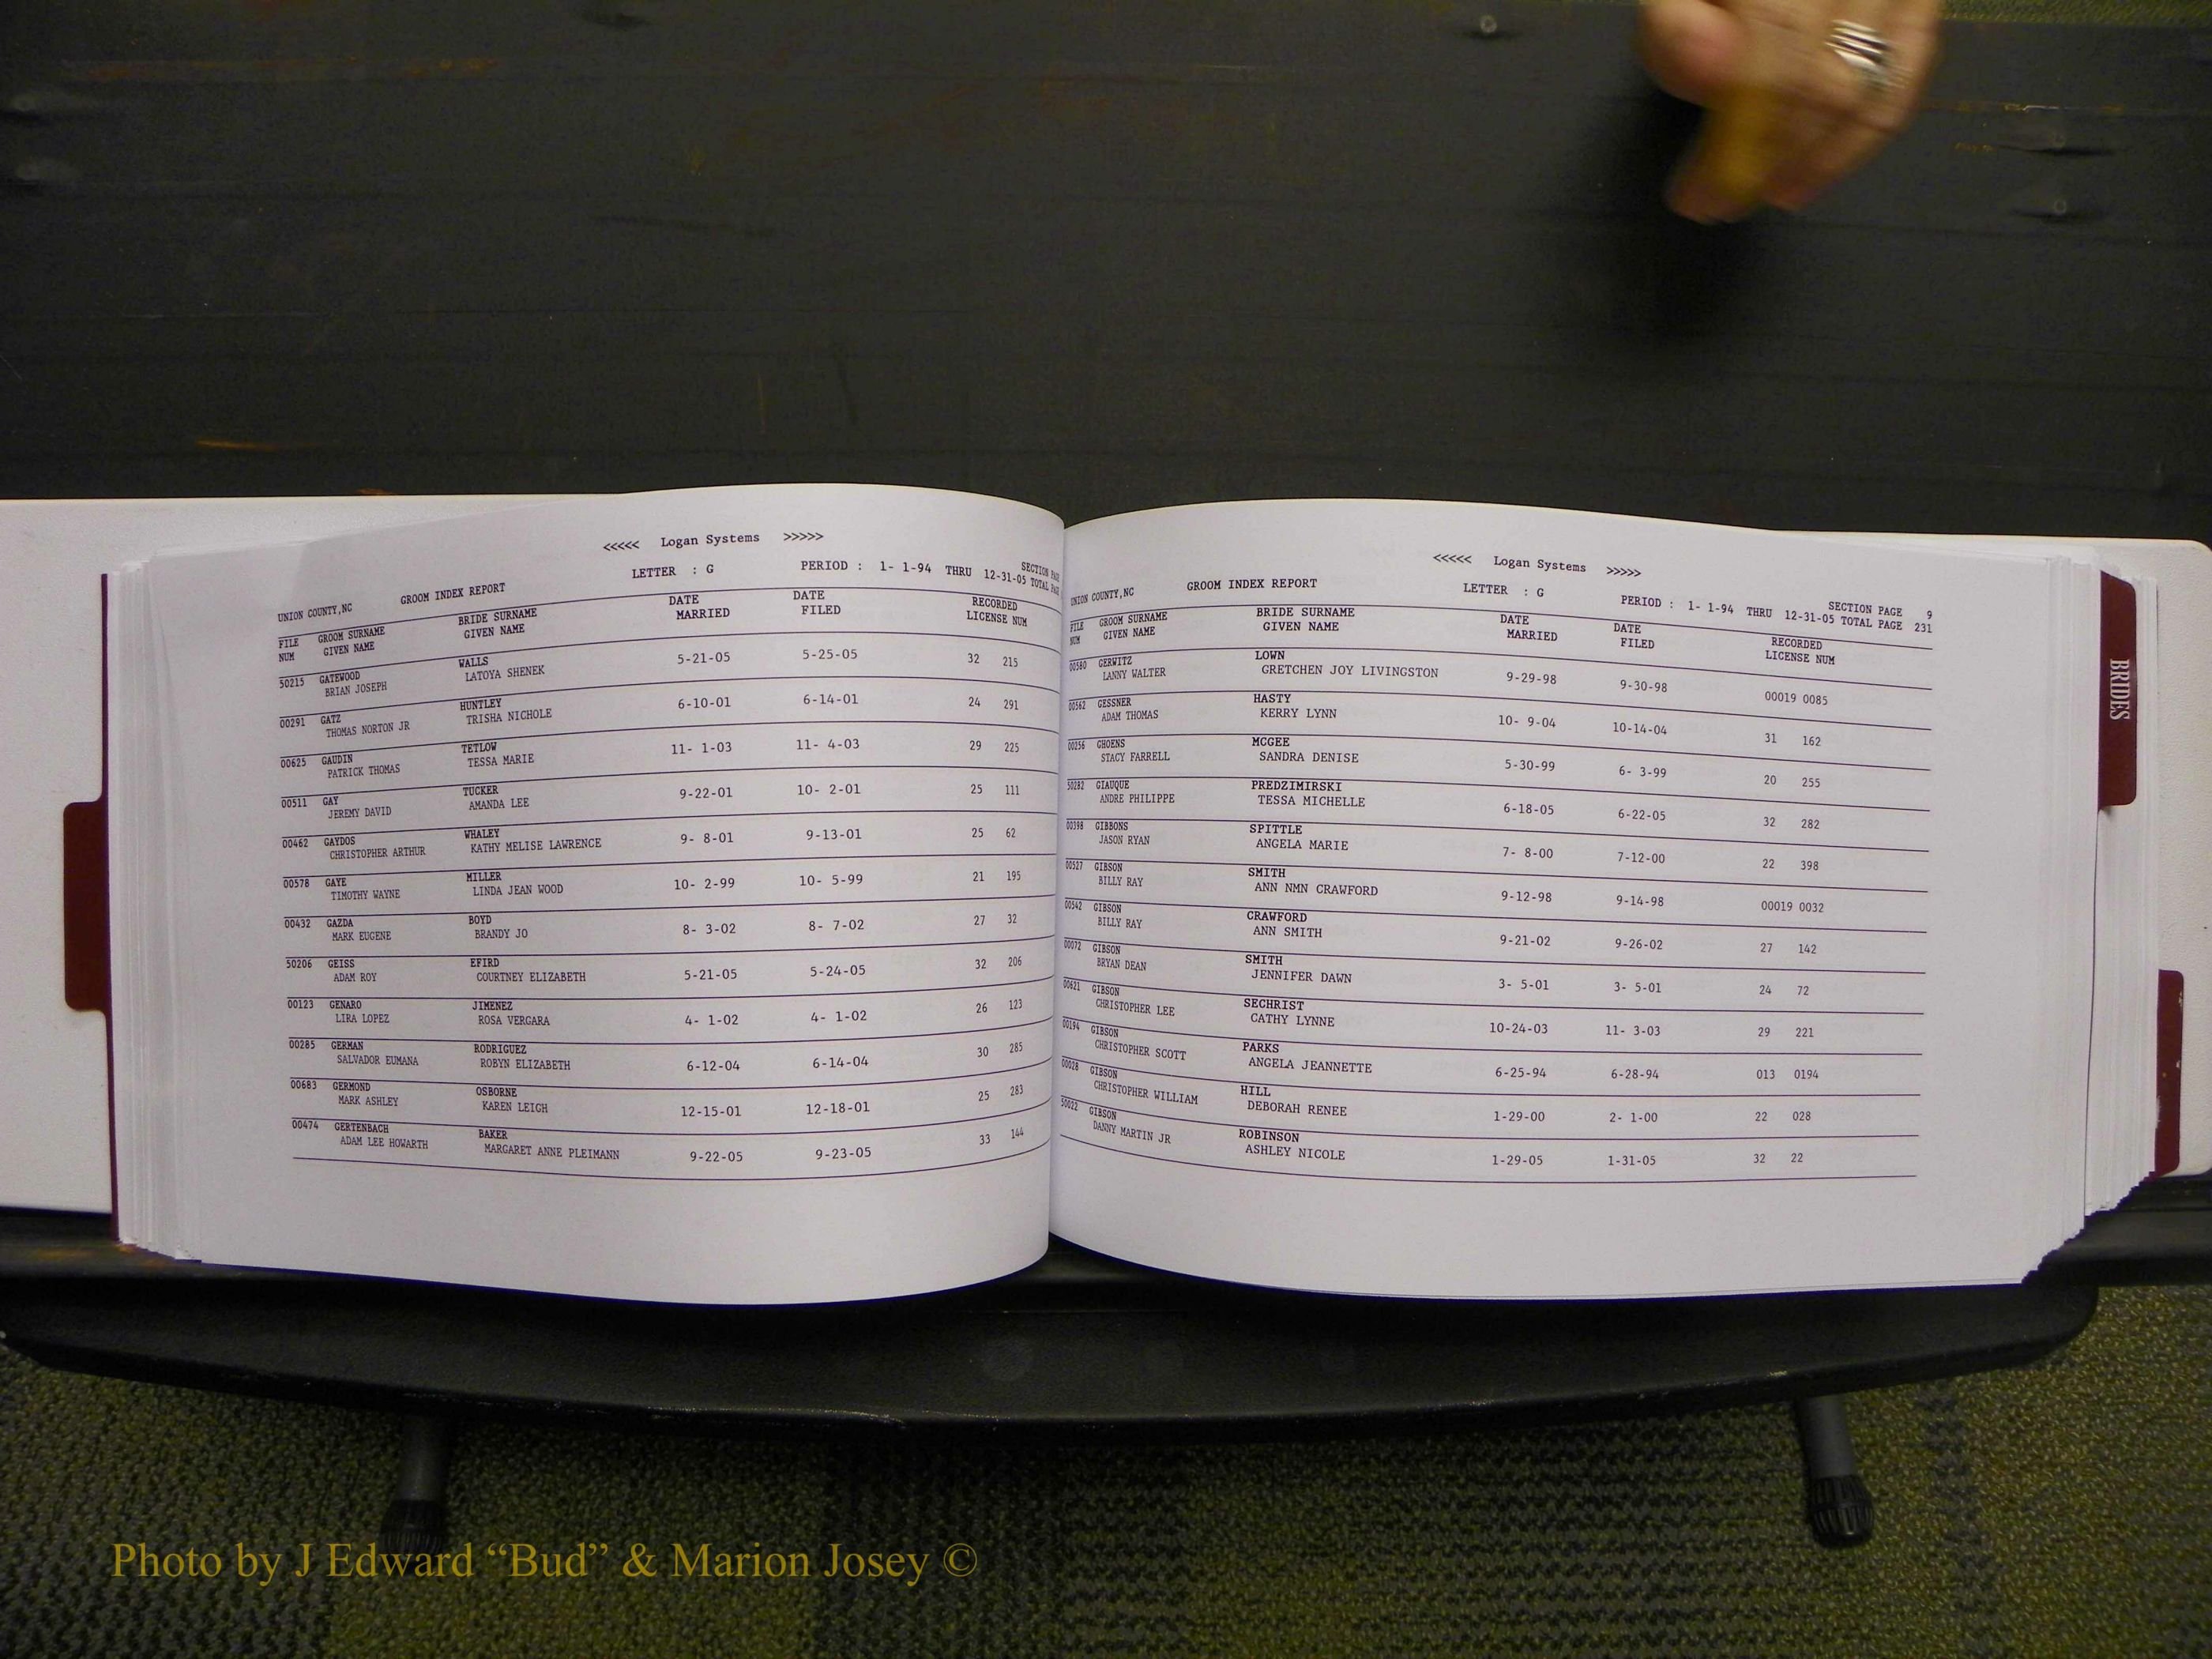 <<<<< Logan Systems >>>>>
UNION COUNTY,NC GROOM INDEX REPORT LETTER : G PERIOD : 1- 1-94 THRU 12-31-05 SECTION PAGE
TOTAL PAGE
FILE GROOM SURNAME BRIDE SURNAME DATE DATE RECORDED
NUM GIVEN NAME GIVEN NAME MARRIED FILED LICENSE NUM
50215 GATEWOOD WALLS 5-21-05 5-25-05 32 215
BRIAN JOSEPH LATOYA SHENEK
00291 GATZ HUNTLEY 6-10-01 6-14-01 24 291
THOMAS NORTON JR TRISHA NICHOLE
00625 GAUDIN TETLOW 11- 1-03 11- 4-03 29 225
PATRICK THOMAS TESSA MARIE
00511 GAY TUCKER 9-22-01 10- 2-01 25 111
JEREMY DAVID AMANDA LEE
00462 GAYDOS WHALEY 9- 8-01 9-13-01 25 62
CHRISTOPHER ARTHUR KATHY MELISE LAWRENCE
00578 GAYE MILLER 10- 2-99 10- 5-99 21 195
TIMOTHY WAYNE LINDA JEAN WOOD
00432 GAZDA BOYD 8- 3-02 8- 7-02 27 32
MARK EUGENE BRANDY JO
50206 GEISS EFIRD 5-21-05 5-24-05 32 206
ADAM ROY COURTNEY ELIZABETH
00123 GENARO JIMENEZ 4- 1-02 4- 1-02 26 123
LIRA LOPEZ ROSA VERGARA
00285 GERMAN RODRIGUEZ 6-12-04 6-14-04 30 285
SALVADOR EUMANA ROBYN ELIZABETH
00683 GERMOND OSBORNE 12-15-01 12-18-01 25 283
MARK ASHLEY KAREN LEIGH
00474 GERTENBACH BAKER 9-22-05 9-23-05 33 144
ADAM LEE HOWARTH MARGARET ANNE PLEIMANN
<<<<< Logan Systems >>>>>
UNION COUNTY,NC GROOM INDEX REPORT LETTER : G PERIOD : 1- 1-94 THRU 12-31-05 SECTION PAGE 9
TOTAL PAGE 231
FILE GROOM SURNAME BRIDE SURNAME DATE DATE RECORDED
NUM GIVEN NAME GIVEN NAME MARRIED FILED LICENSE NUM
00580 GERWITZ LOWN 9-29-98 9-30-98 00019 0085
LANNY WALTER GRETCHEN JOY LIVINGSTON
00562 GESSNER HASTY 10- 9-04 10-14-04 31 162
ADAM THOMAS KERRY LYNN
00256 GHOENS MCGEE 5-30-99 6- 3-99 20 255
STACY FARRELL SANDRA DENISE
50282 GIAUQUE PREDZIMIRSKI 6-18-05 6-22-05 32 282
ANDRE PHILIPPE TESSA MICHELLE
00398 GIBBONS SPITTLE 7- 8-00 7-12-00 22 398
JASON RYAN ANGELA MARIE
00527 GIBSON SMITH 9-12-98 9-14-98 00019 0032
BILLY RAY ANN NMN CRAWFORD
00542 GIBSON CRAWFORD 9-21-02 9-26-02 27 142
BILLY RAY ANN SMITH
00072 GIBSON SMITH 3- 5-01 3- 5-01 24 72
BRYAN DEAN JENNIFER DAWN
00621 GIBSON SECHRIST 10-24-03 11- 3-03 29 221
CHRISTOPHER LEE CATHY LYNNE
00194 GIBSON PARKS 6-25-94 6-28-94 013 0194
CHRISTOPHER SCOTT ANGELA JEANNETTE
00028 GIBSON HILL 1-29-00 2- 1-00 22 028
CHRISTOPHER WILLIAM DEBORAH RENEE
50022 GIBSON ROBINSON 1-29-05 1-31-05 32 22
DANNY MARTIN JR ASHLEY NICOLE
BRIDES
Photo by J Edward “Bud” & Marion Josey ©